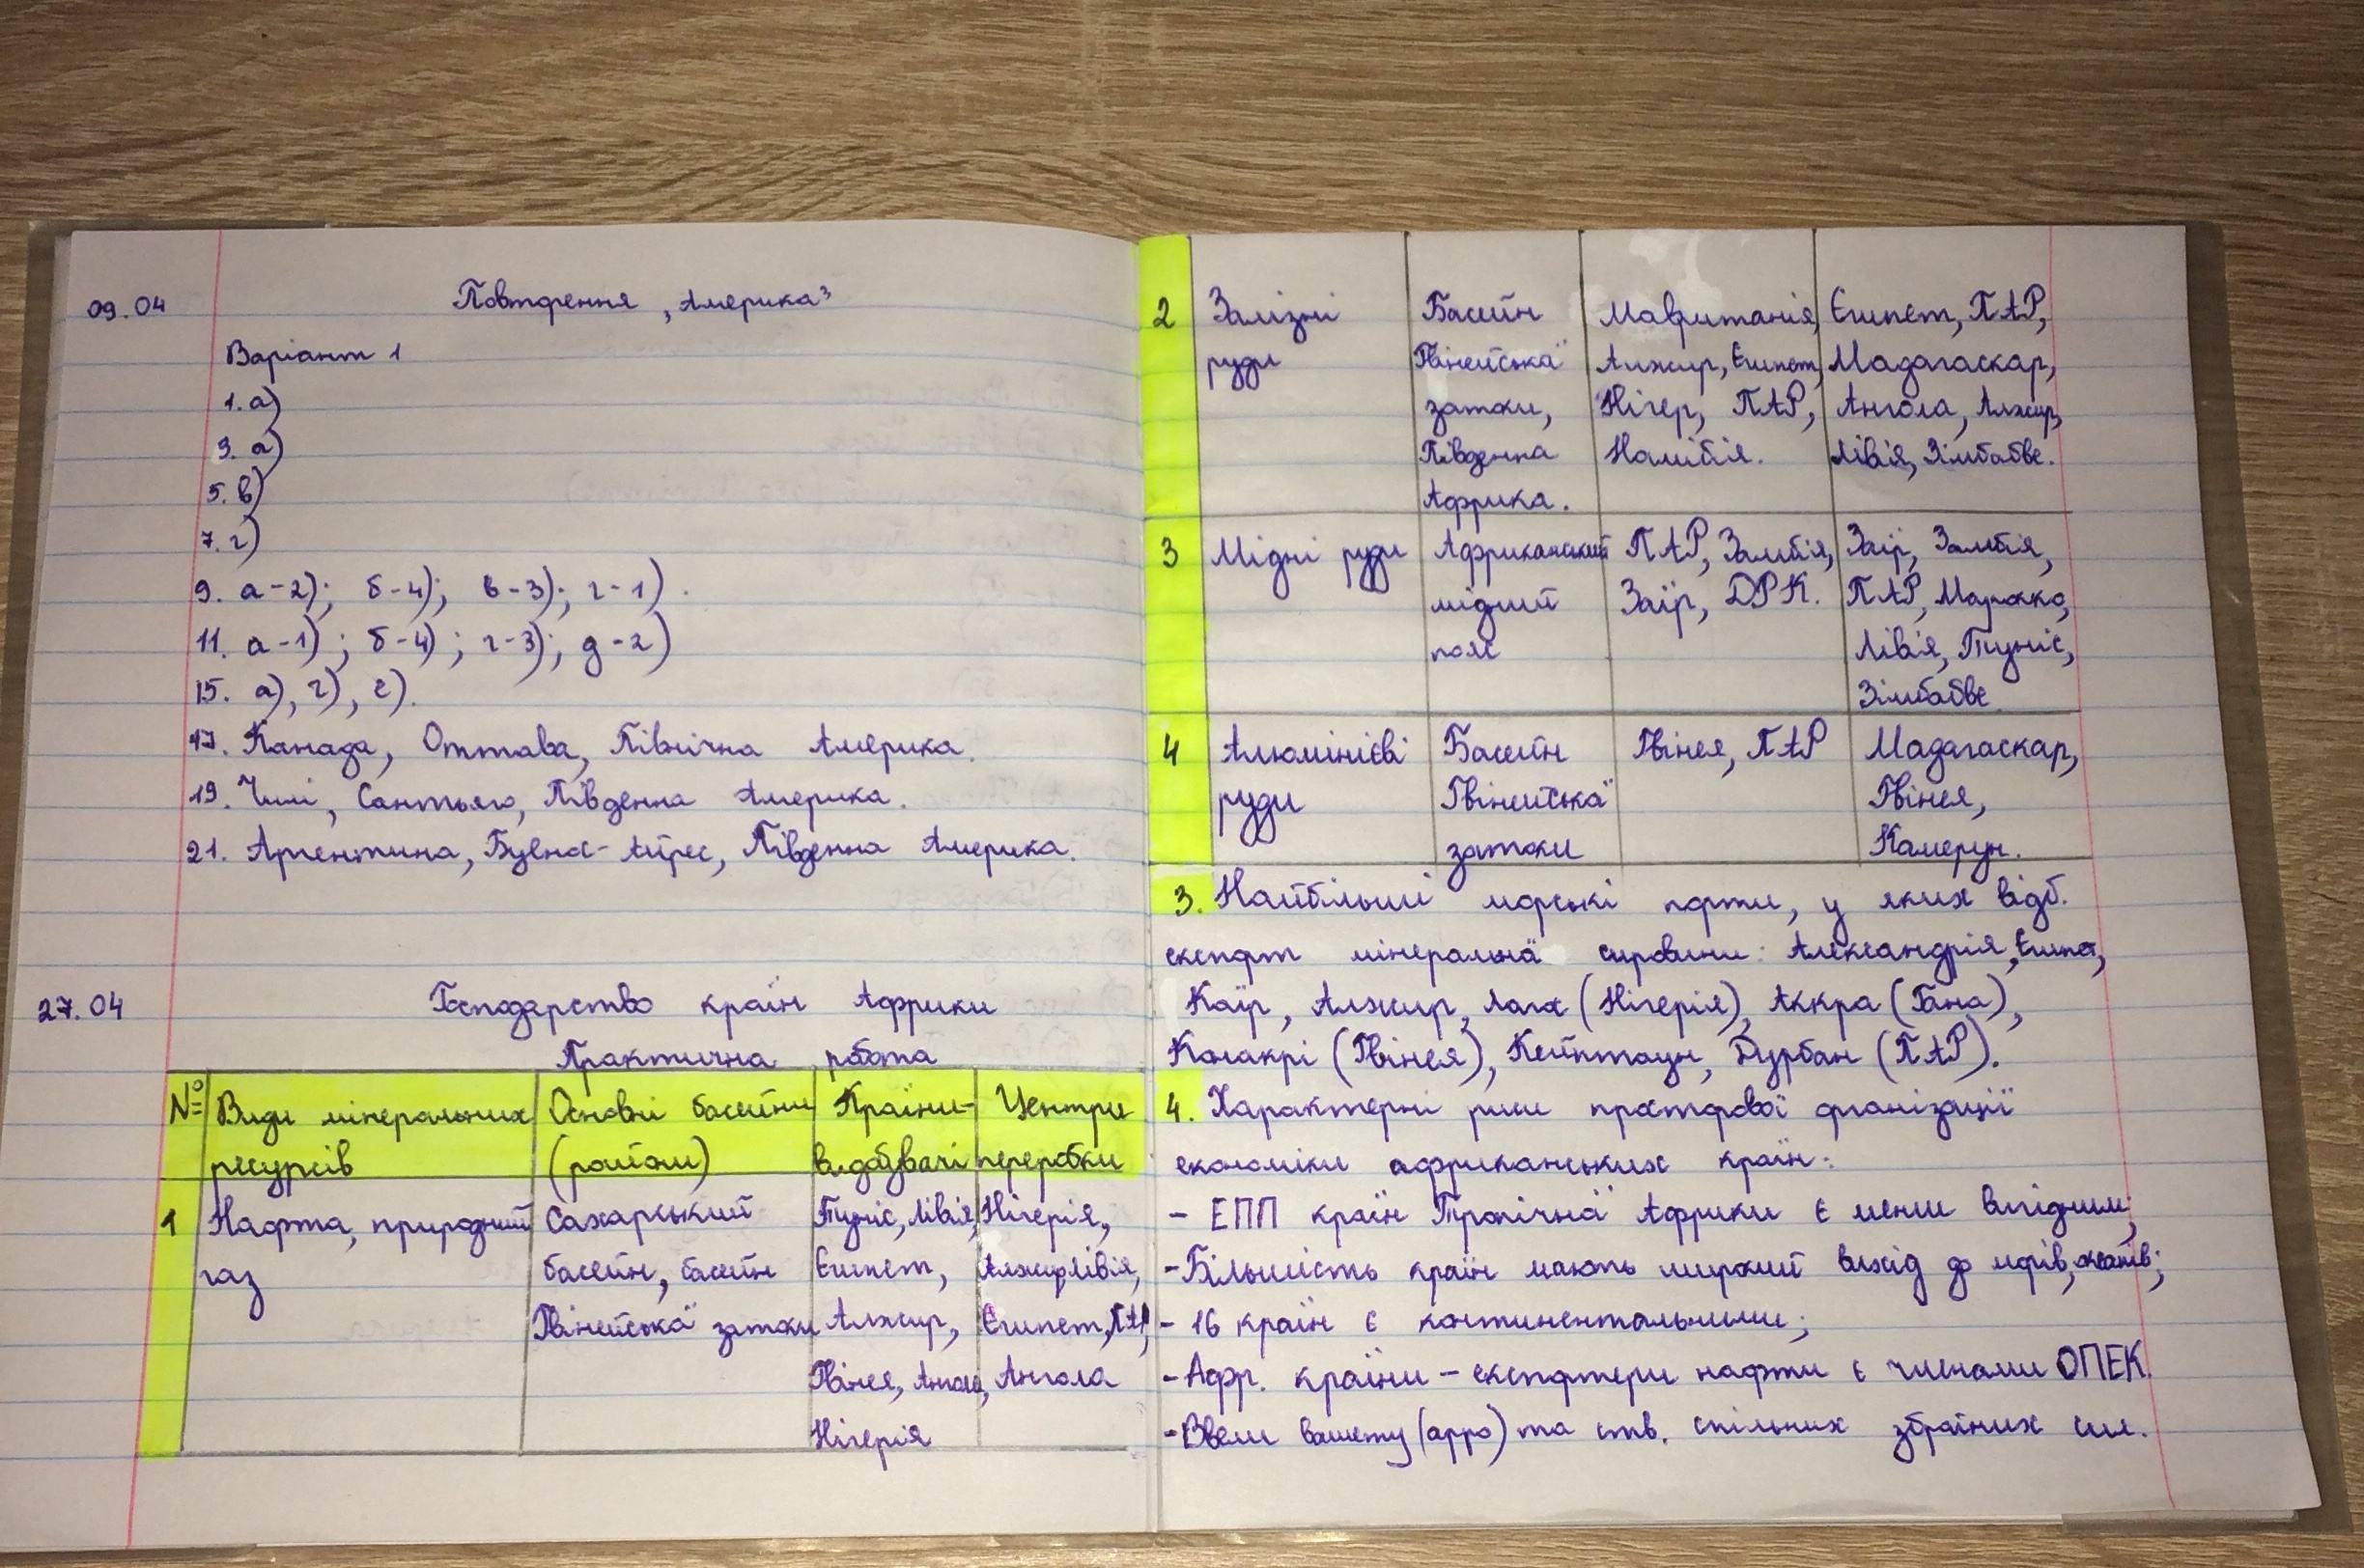 09.04 Повторення „Америка"
Варіант 1
1. а)
3. а)
5. в)
7. г)
9. а-2); б-4); в-3); г-1).
11. а-1); б-4); г-3); д-2)
15. а), г), є).
17. Канада, Оттава, Північна Америка.
19. Чилі, Сантьяго, Південна Америка.
21. Аргентина, Буенос-Айрес, Південна Америка.
27.04 Господарство країн Африки
Практична робота
№ Види мінеральних Основні басейни Країни- Центри
ресурсів (райони) видобувачі переробки
1 Нафта, природний Сахарський Туніс, Лівія, Нігерія,
газ басейн, басейн Єгипет, Алжир, Лівія,
Гвінейської затоки Алжир, Єгипет, ПАР,
Гвінея, Ангола, Ангола
Нігерія
2 Залізні Басейн Мавританія, Єгипет, ПАР,
руди Гвінейської Алжир, Єгипет, Мадагаскар,
затоки, Нігер, ПАР, Ангола, Алжир,
Південна Намібія. Лівія, Зімбабве.
Африка.
3 Мідні руди Африканський ПАР, Замбія, Заїр, Замбія,
мідний Заїр, ДРК. ПАР, Марокко,
пояс Лівія, Туніс,
Зімбабве
4 Алюмінієві Басейн Гвінея, ПАР Мадагаскар,
руди Гвінейської Гвінея,
затоки Камерун.
3. Найбільші морські порти, у яких відб.
експорт мінеральної сировини: Александрія, Єгипет,
Каїр, Алжир, Лагос (Нігерія), Аккра (Гана),
Конакрі (Гвінея), Кейптаун, Дурбан (ПАР).
4. Характерні риси просторової організації
економіки африканських країн:
- ЕПП країн Тропічної Африки є менш вигідним;
- Більшість країн мають широкий вихід до морів, океанів;
- 16 країн є континентальними;
- Афр. країни - експортери нафти є членами ОПЕК.
- Ввели валюту (афро) та ств. спільних збройних сил.